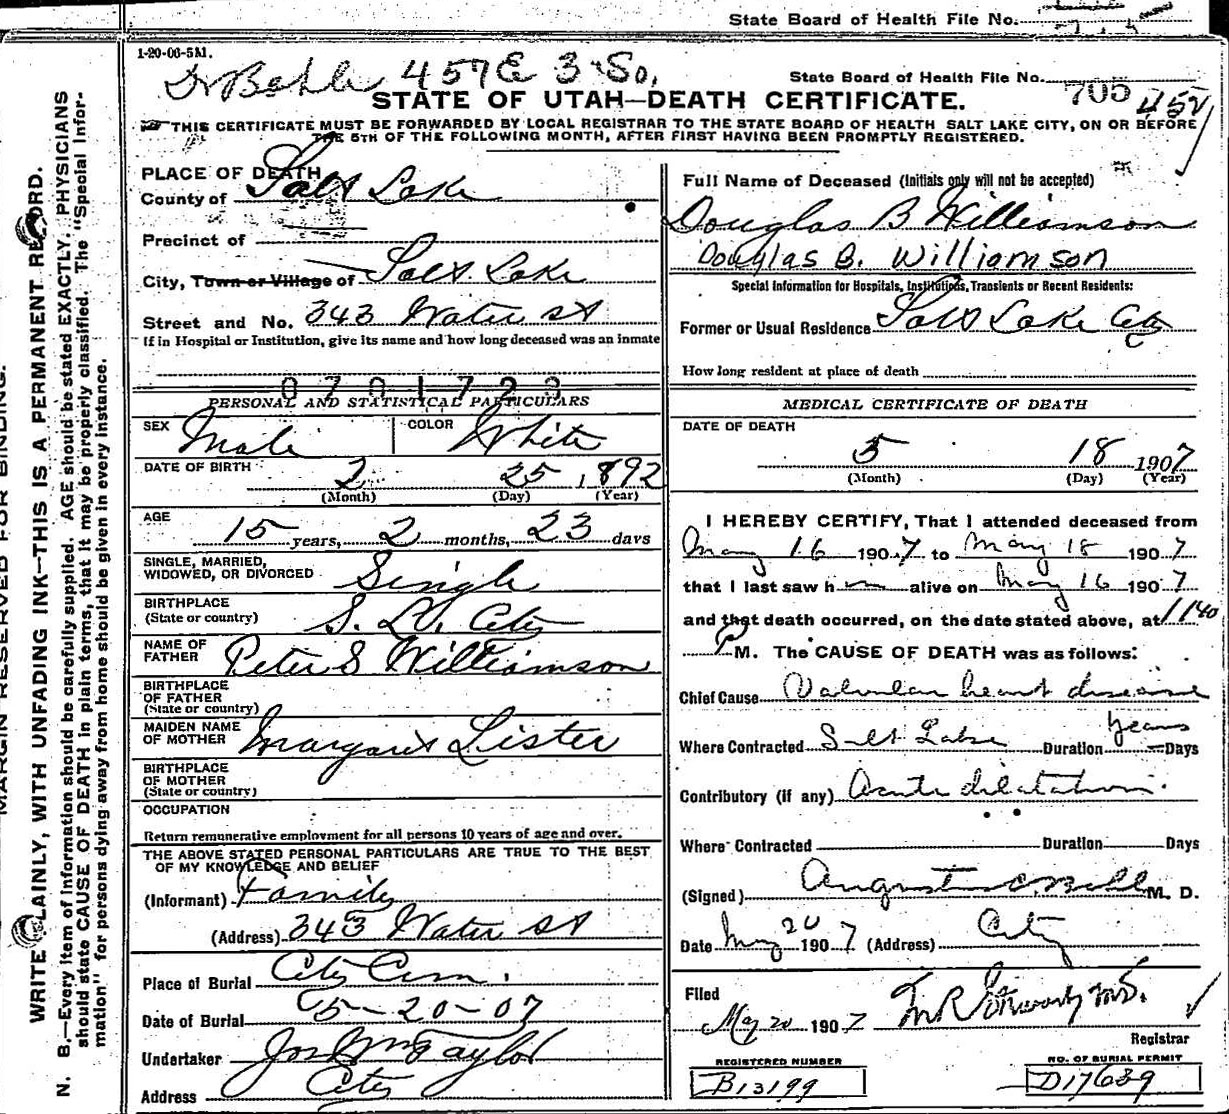 State Board of Health File No.
1-20-06-5M.
Dr Behle 457 E 3 So.
State Board of Health File No. 705 452
STATE OF UTAH—DEATH CERTIFICATE.
THIS CERTIFICATE MUST BE FORWARDED BY LOCAL REGISTRAR TO THE STATE BOARD OF HEALTH SALT LAKE CITY, ON OR BEFORE
THE 5TH OF THE FOLLOWING MONTH, AFTER FIRST HAVING BEEN PROMPTLY REGISTERED.
PLACE OF DEATH
County of Salt Lake
Precinct of
City, Town or Village of Salt Lake
Street and No. 343 Water st
If in Hospital or Institution, give its name and how long deceased was an inmate
0701723
PERSONAL AND STATISTICAL PARTICULARS
SEX Male COLOR White
DATE OF BIRTH 2 25 1892
(Month) (Day) (Year)
AGE 15 years, 2 months, 23 days
SINGLE, MARRIED,
WIDOWED, OR DIVORCED Single
BIRTHPLACE
(State or country) S. L. City
NAME OF
FATHER Peter S Williamson
BIRTHPLACE
OF FATHER
(State or country)
MAIDEN NAME
OF MOTHER Margaret Lister
BIRTHPLACE
OF MOTHER
(State or country)
OCCUPATION
Return remunerative employment for all persons 10 years of age and over.
THE ABOVE STATED PERSONAL PARTICULARS ARE TRUE TO THE BEST
OF MY KNOWLEDGE AND BELIEF
(Informant) Family
(Address) 343 Water st
Place of Burial City Cem.
Date of Burial 5-20-07
Undertaker Jos Wm Taylor
Address City
Full Name of Deceased (Initials only will not be accepted)
Douglas B Williamson
Douglas B. Williamson
Special Information for Hospitals, Institutions, Transients or Recent Residents:
Former or Usual Residence Salt Lake City
How long resident at place of death
MEDICAL CERTIFICATE OF DEATH
DATE OF DEATH
5 18 1907
(Month) (Day) (Year)
I HEREBY CERTIFY, That I attended deceased from
May 16 1907 to May 18 1907
that I last saw h im alive on May 16 1907
and that death occurred, on the date stated above, at 11 40
P M. The CAUSE OF DEATH was as follows:
Chief Cause Valvular heart disease
Where Contracted Salt Lake Duration years Days
Contributory (if any) Acute dilatation.
Where Contracted Duration Days
(Signed) Augustus C Behle M. D.
Date May 20 1907 (Address) City
Filed
May 20 1907
Registrar
REGISTERED NUMBER
B13199
NO. OF BURIAL PERMIT
D17639
MARGIN RESERVED FOR BINDING.
WRITE PLAINLY, WITH UNFADING INK—THIS IS A PERMANENT RECORD.
N. B.—Every item of information should be carefully supplied. AGE should be stated EXACTLY. PHYSICIANS
should state CAUSE OF DEATH in plain terms, that it may be properly classified. The "Special Infor-
mation" for persons dying away from home should be given in every instance.